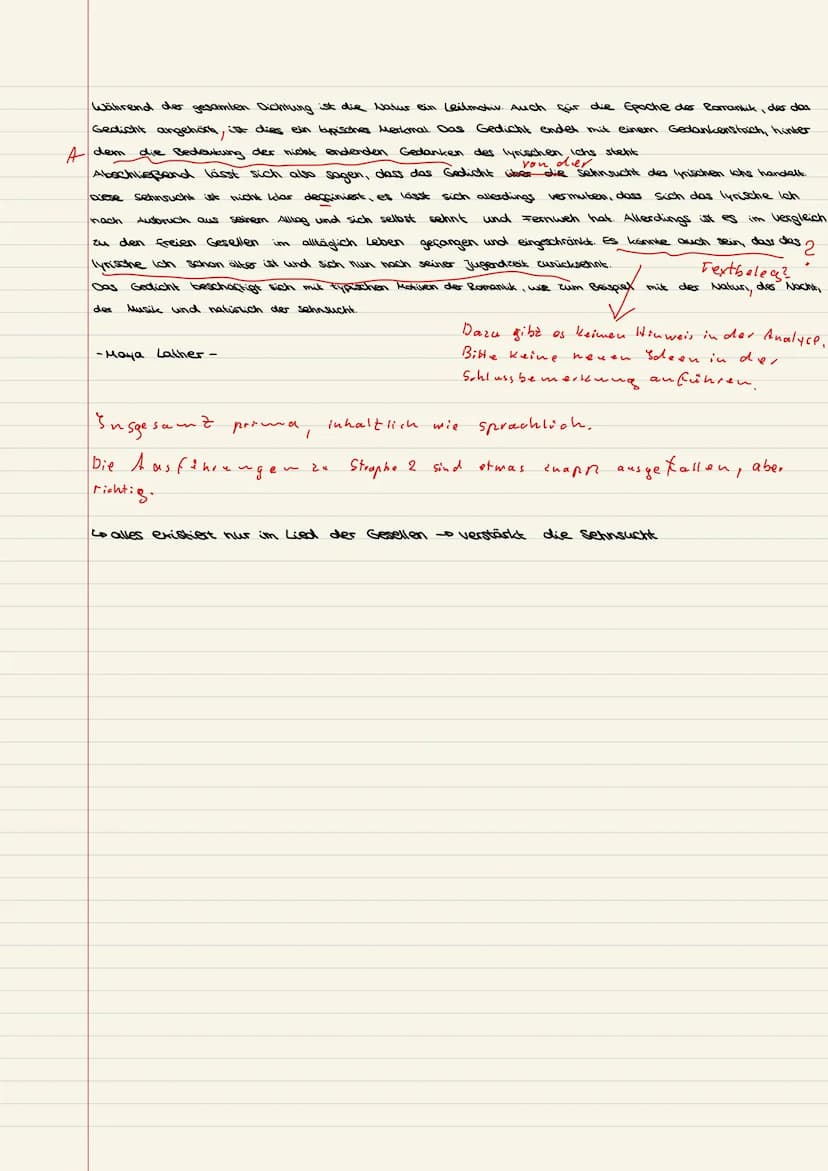 Während der gesamten Dichtung ist die Natur ein Leitmotiv. Auch für die Epoche der Romantik, der das
Gedicht angehört, ist dies ein typisches Merkmal. Das Gedicht endet mit einem Gedankenstrich, hinter
A dem die Bedeutung der nicht endenden Gedanken des lyrischen Ichs steht
von der
Abschließend lässt sich also sagen, dass das Gedicht über die Sehnsucht des lyrischen Ichs handelt.
Diese Sehnsucht ist nicht klar deffiniert, es lässt sich allerdings vermuten, dass sich das lyrische Ich
nach Ausbruch aus seinem Alltag und sich selbst sehnt und Fernweh hat. Allerdings ist es im Vergleich
zu den freien Gesellen im alltäglich Leben gefangen und eingeschränkt. Es könnte auch sein, dass das ?
lyrische Ich schon älter ist und sich nun nach seiner Jugendzeit zurücksehnt.
Textbeleg?
Das Gedicht beschäftigt sich mit typischen Motiven der Romantik, wie zum Beispiel mit der Natur, der Nacht,
der Musik und natürlich der Sehnsucht.
Dazu gibt es keinen Hinweis in der Analyse.
- Maya Lather -
Bitte keine neuen Ideen in der
Schlussbemerkung anführen.
Insgesamt prima, inhaltlich wie sprachlich.
Die Ausführungen zu Strophe 2 sind etwas knapp ausgefallen, aber
richtig.
↳ alles existiert nur im Lied der Gesellen → verstärkt die Sehnsucht